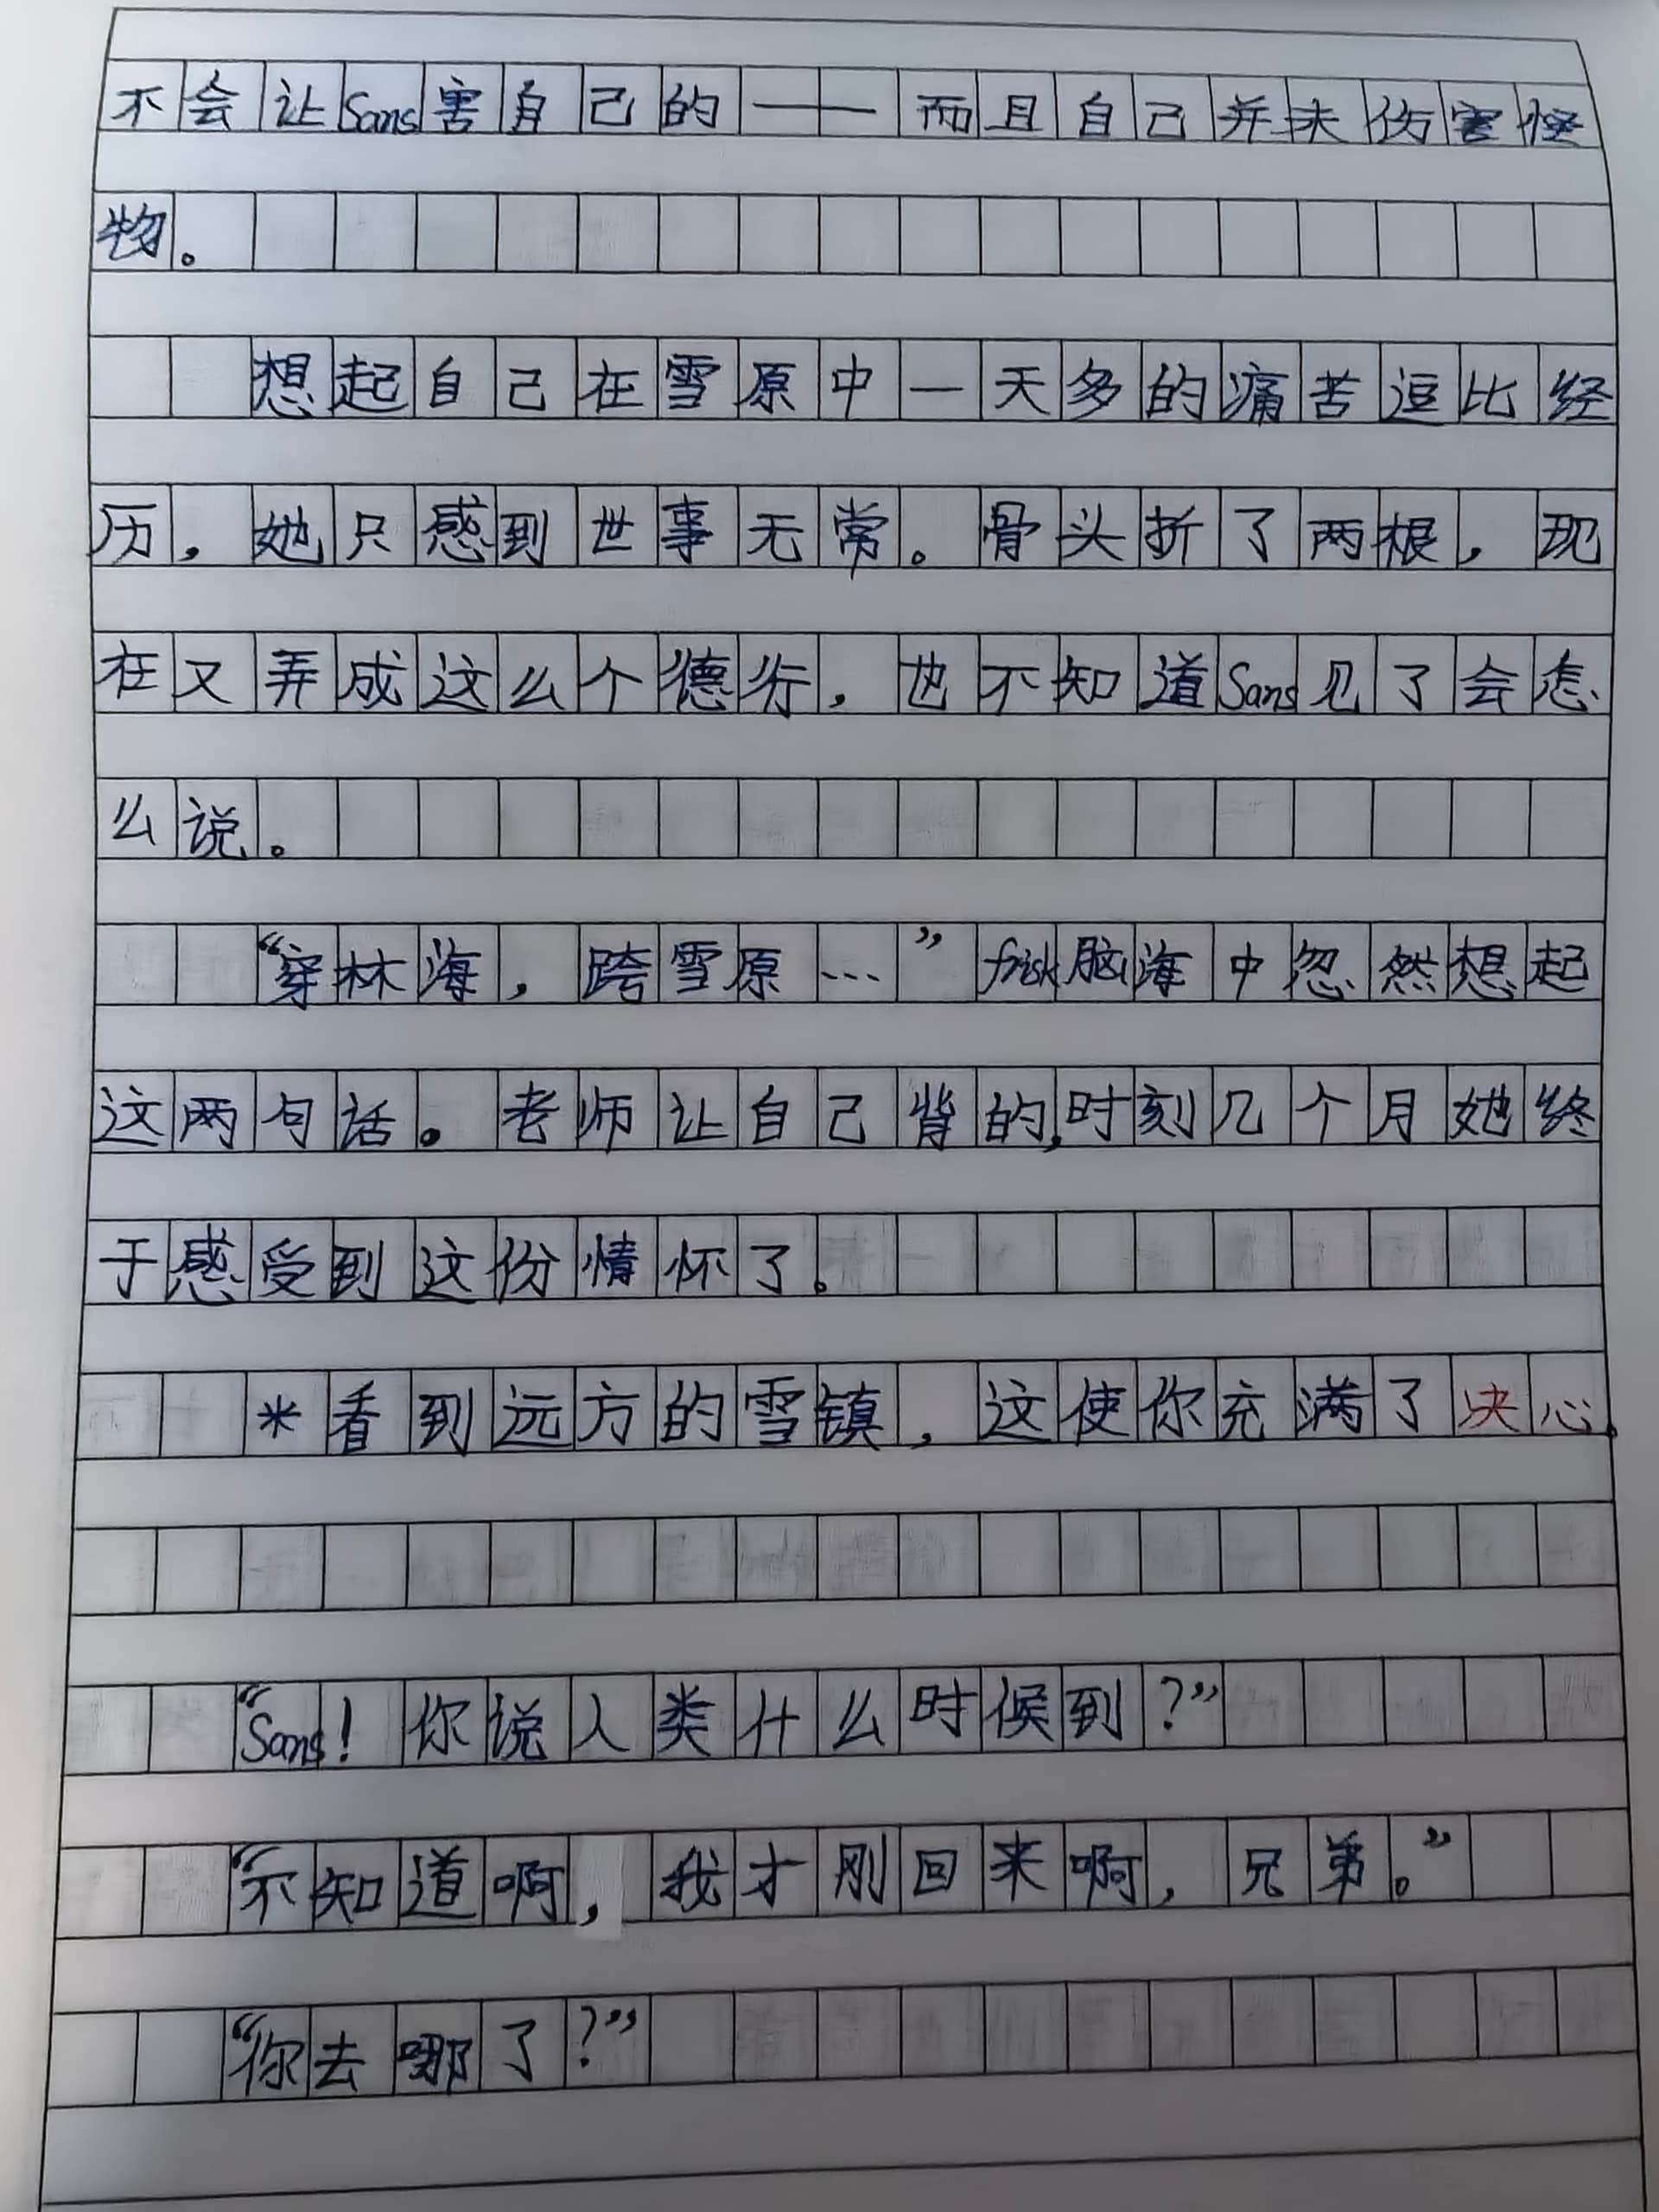 不会让Sans害自己的——而且自己并未伤害怪
物。
想起自己在雪原中一天多的痛苦逗比经
历，她只感到世事无常。骨头折了两根，现
在又弄成这么个德行，也不知道Sans见了会怎
么说。
“穿林海，跨雪原…”frisk脑海中忽然想起
这两句话。老师让自己背的，时刻几个月她终
于感受到这份情怀了。
*看到远方的雪镇，这使你充满了决心。
“Sans！你说人类什么时候到？”
“不知道啊，我才刚回来啊，兄弟。”
“你去哪了？”